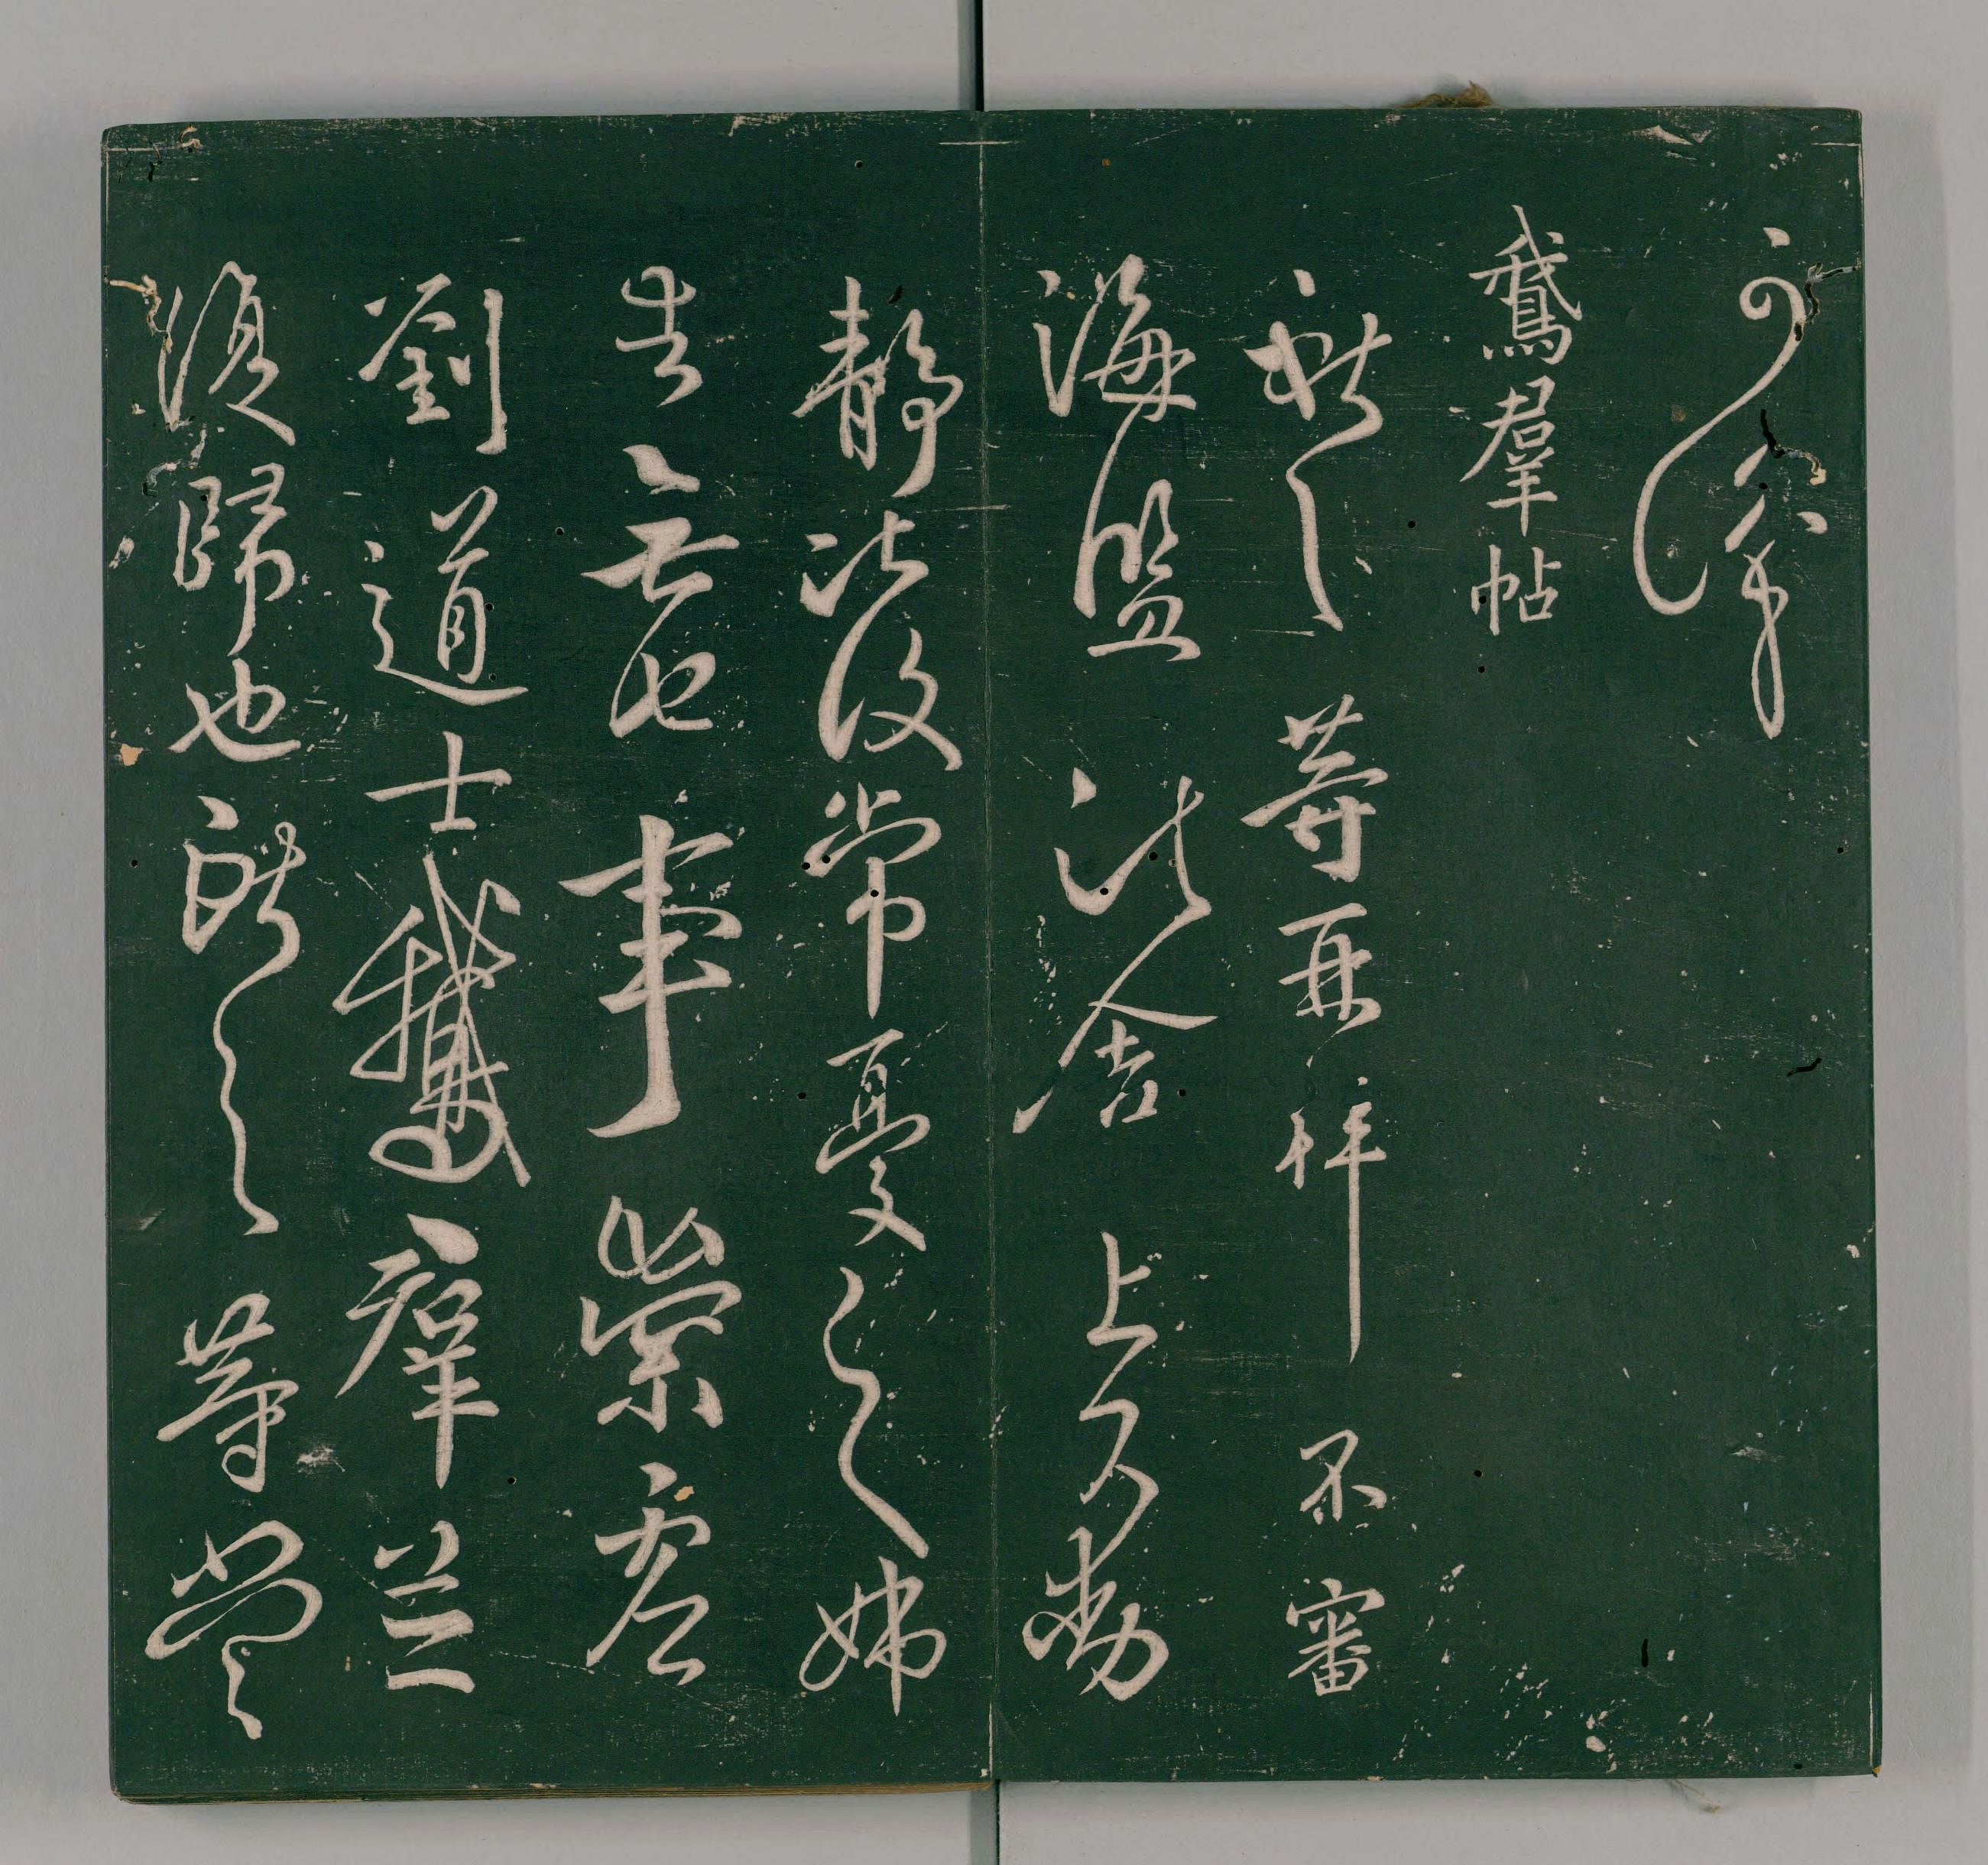 鵞羣帖
獻之等再拜不審
海鹽諸舍上下動
靜比復常憂之姊
告無他事崇虛
劉道士鵝羣並
復歸也獻之等當